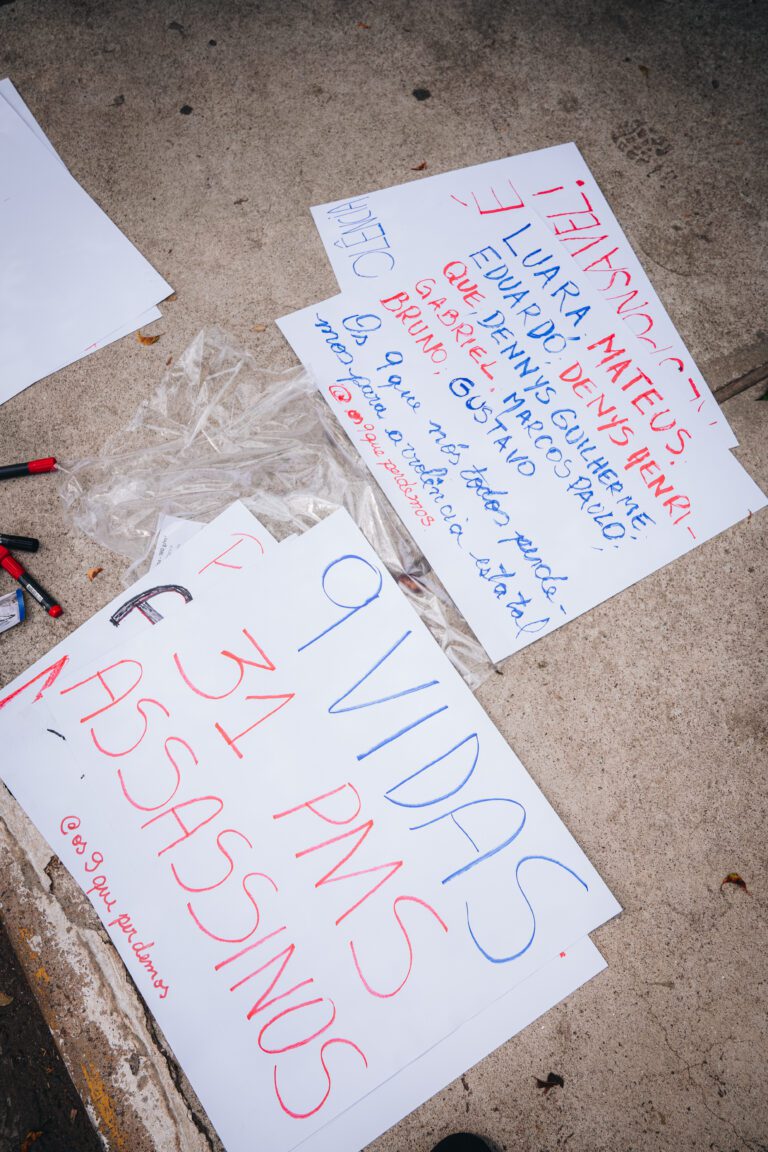 É
RESPONSÁVEL!
OLÊNCIA
LUARA; MATEUS;
EDUARDO; DENYS HENRI-
QUE, DENNYS GUILHERME;
GABRIEL; MARCOS PAULO;
BRUNO; GUSTAVO
Os 9 que nós todos perde-
mos para a violência estatal
@os9queperdemos
P
F
9 VIDAS
31 PMS
ASSASSINOS
@os9queperdemos